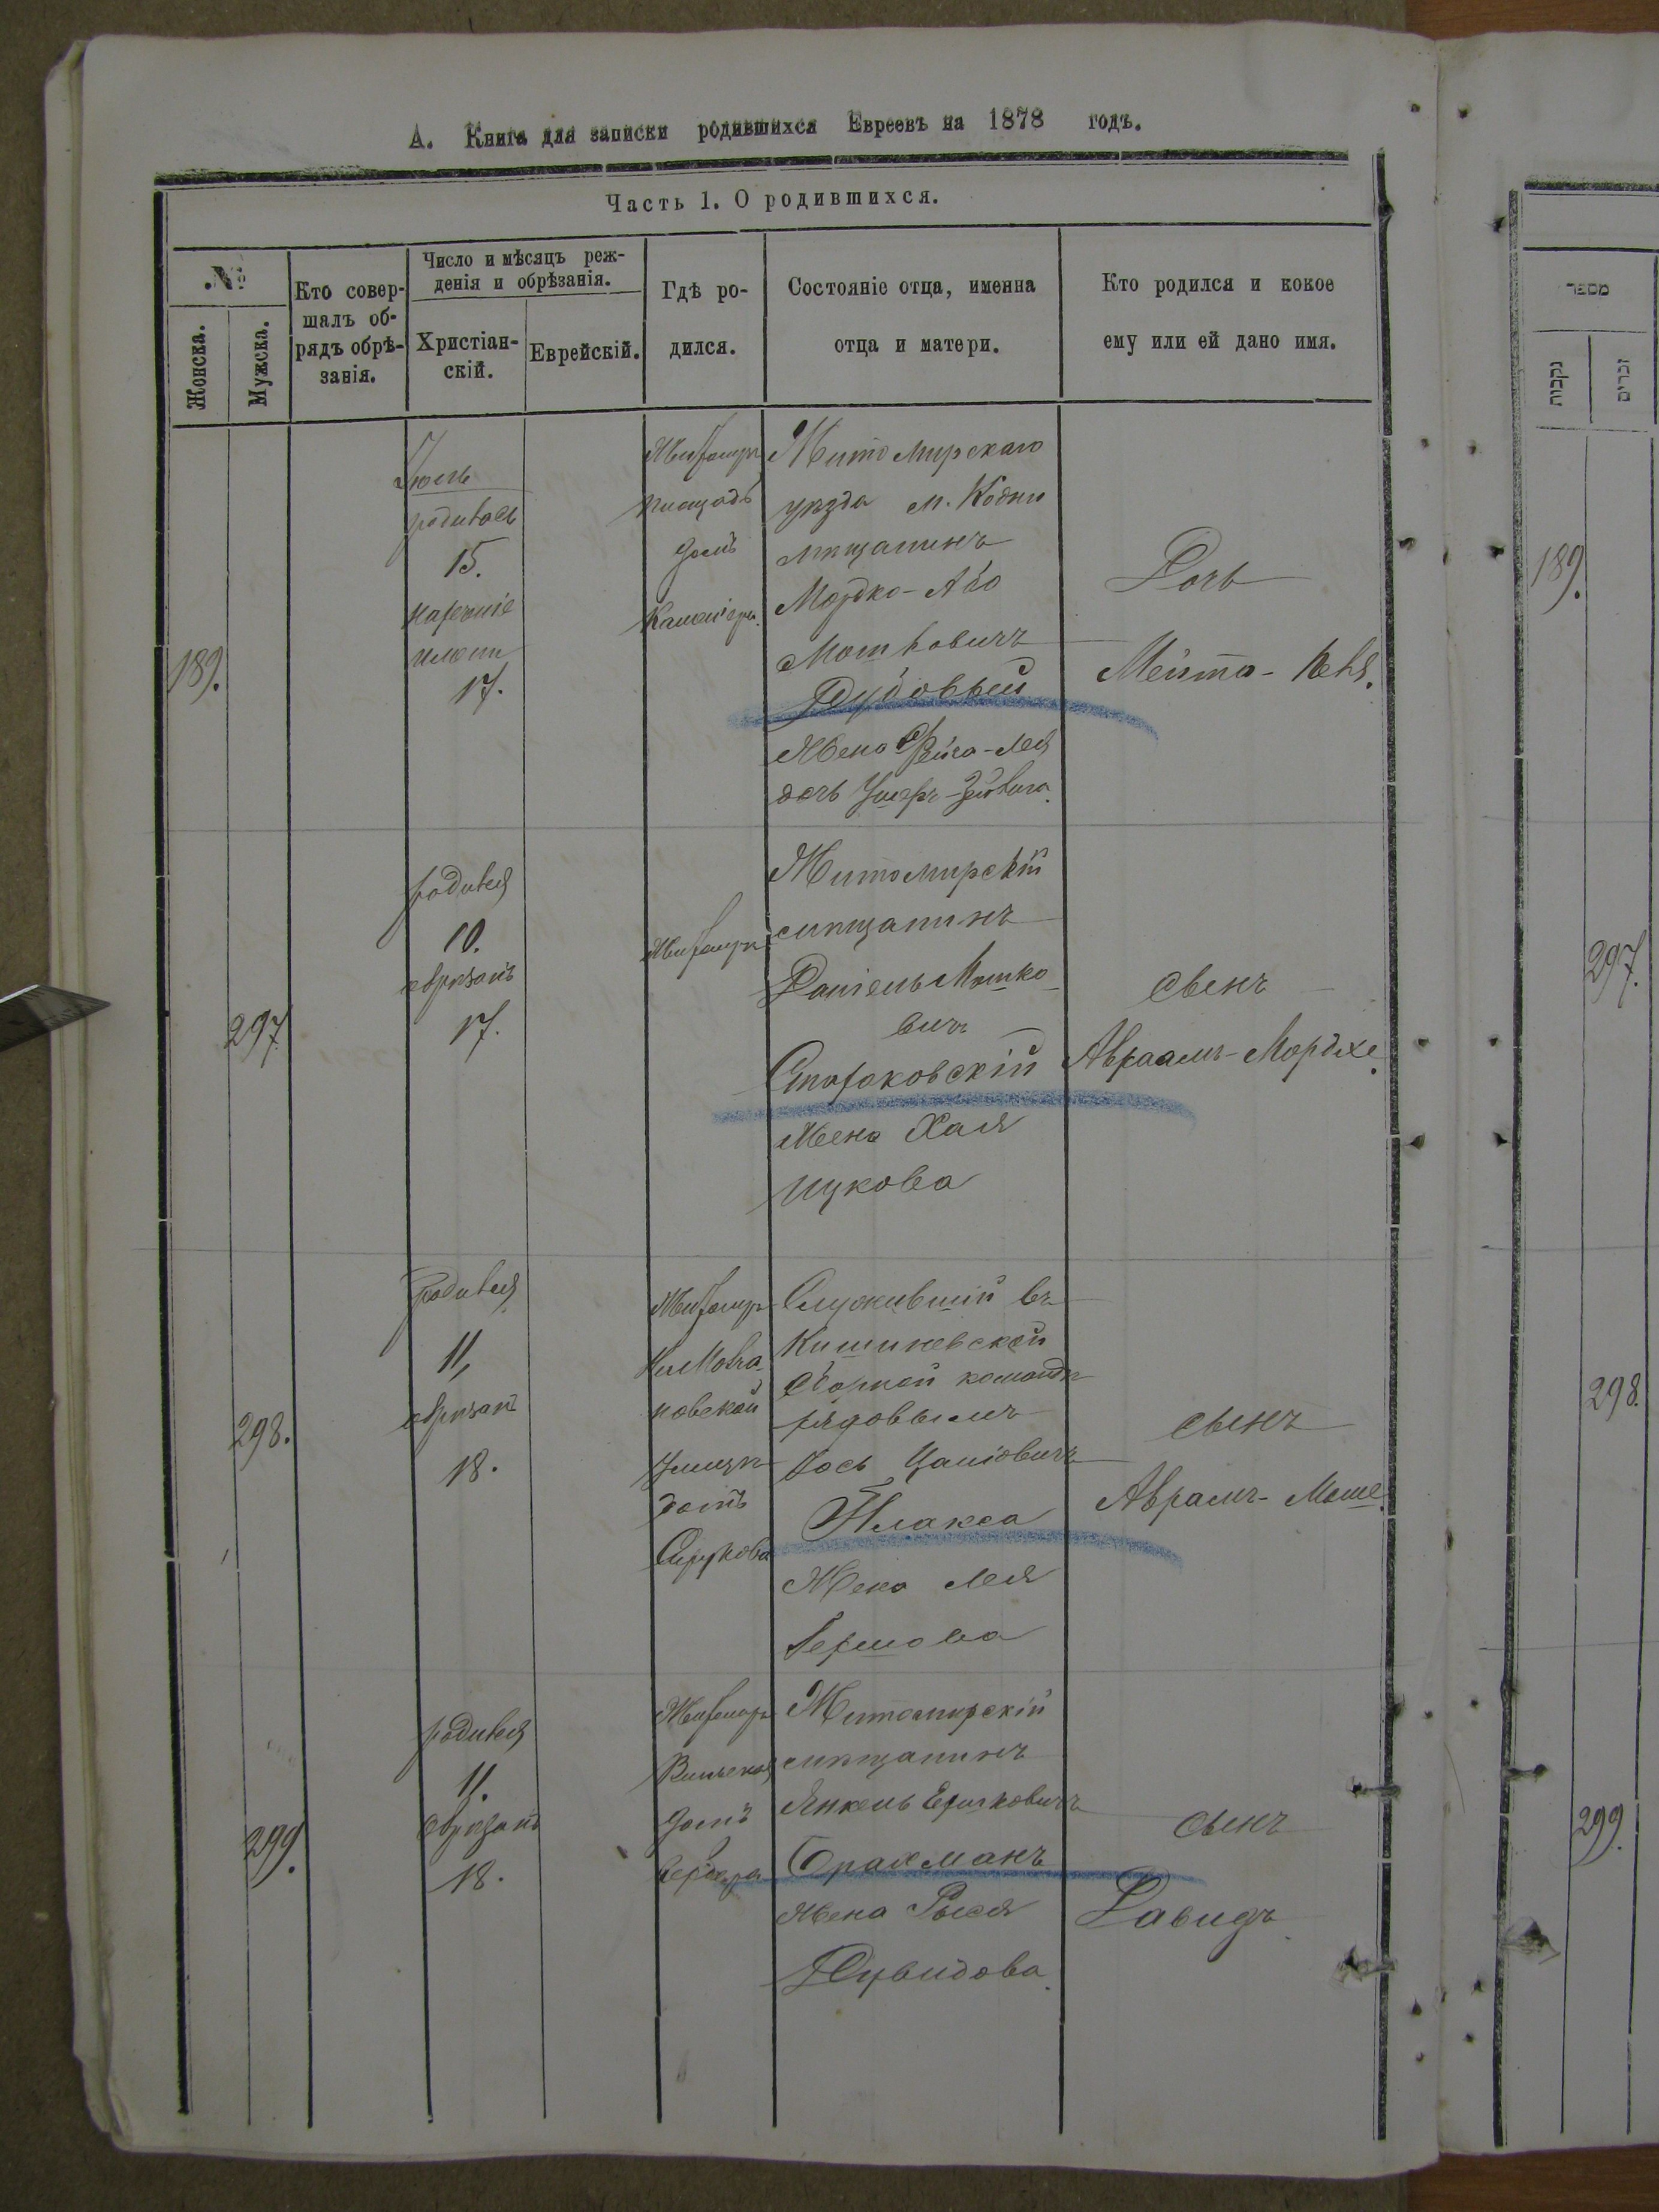 А. Книга для записки родившихся Евреевъ на 1878 годъ.
Часть 1. О родившихся.
№
Женска.
Мужска.
Кто совер-
шалъ об-
рядъ обрѣ-
занія.
Число и мѣсяцъ реж-
денія и обрѣзанія.
Христіан-
скій.
Еврейскій.
Гдѣ ро-
дился.
Состояніе отца, именна
отца и матери.
Кто родился и кокое
ему или ей дано имя.
189.
Іюль
родилась
15.
наречніе
имени
17.
Житомиръ
площадь
домъ
Житомирскаго
уѣзда м. Кодни
мѣщанинъ
Мордко-Або
Мошковичъ
Дубовый
Жена Фейга-Лея
дочь Ушеръ-Зейвига
Дочь
Мейта-Неня.
297
родился
10.
обрѣзанъ
17.
Житомиръ
Житомирскій
мѣщанинъ
Даніель Мошко-
вичъ
Стараковскій
Жена Хая
Ицкова
сынъ
Авраамъ-Мордхе.
298.
родился
11,
обрѣзанъ
18.
Житомиръ
улицѣ
домъ
Служившій въ
Кишиневской
сборной командѣ
рядовымъ
Іось
Плакса
Жена Лея
Гершова
сынъ
Аврамъ-Моше.
299.
родился
11.
обрѣзанъ
18.
Житомиръ
Вильская
домъ
Житомирскій
мѣщанинъ
Янкель Ершковичъ
Брахманъ
Жена Рыся
Дувидова.
сынъ
Давидъ
מספר
נקבות
זכרים
189.
297.
298.
299.